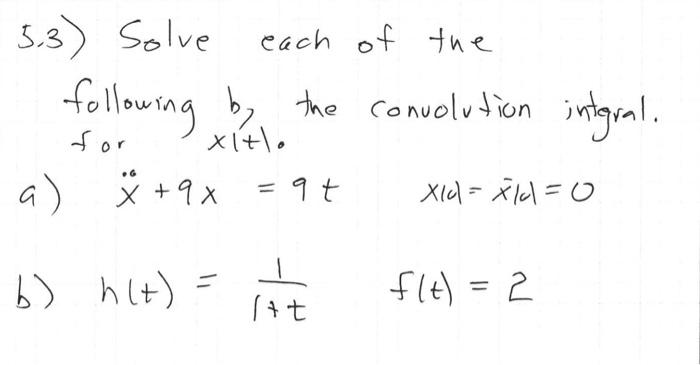 5.3) Solve each of the
following by the convolution integral.
for x(t).
a) ẍ + 9x = 9t x(0) = ẋ(0) = 0
b) h(t) = 1/(1+t) f(t) = 2